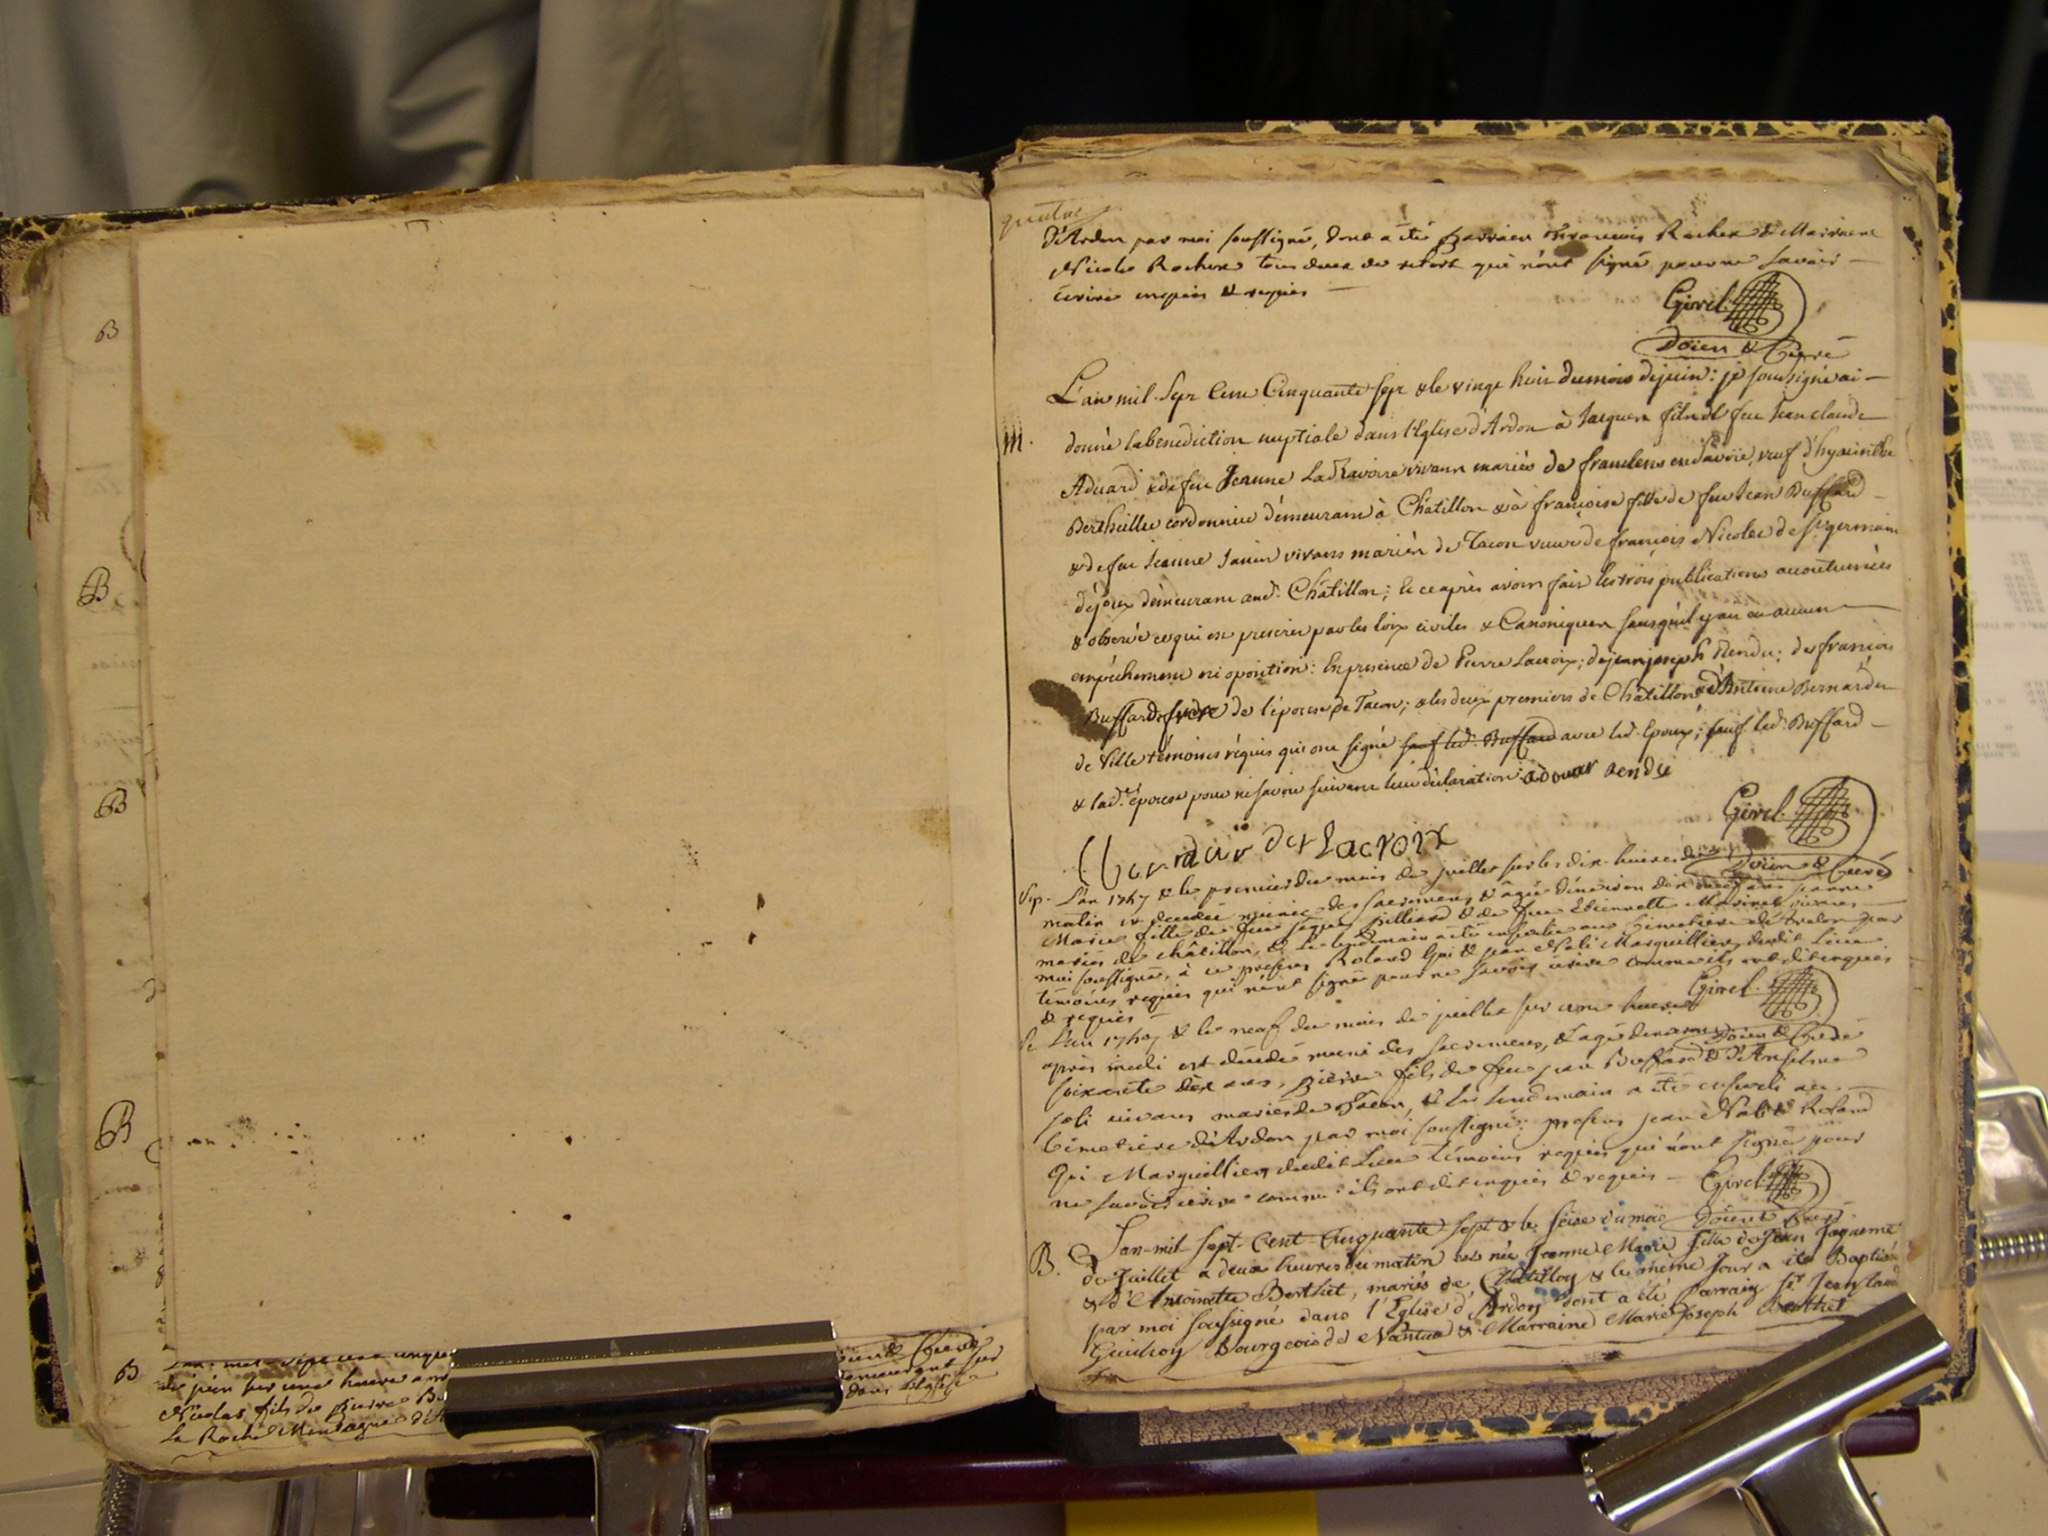 B
B
B
B
B
de juin sur une heure
Nicolas fils de pierre
La Roche Montagne
dans l'Eglise
quatre
d'Ardon par moi soussigné, dont a été parrain françois Rochex & Marraine
Nicole Rochex tous deux de retort qui n'ont signé pour ne savoir
écrire enquis & requis
Girel
Doien & Curé
M.
L'an mil Sept Cent Cinquante sept & le vingt huit du mois de juin: je soussigné ai
donné la benediction nuptiale dans l'Eglise d'Ardon à Jacques fils de feu Jean claude
Aduard & de feu Jeanne Laravoire vivans mariés de franclens en Savoie, veuf d'hyacinthe
Bertheillier cordonnier demeurant à Châtillon & à françoise fille de feu Jean Buffard
& de feu Jeanne Janin vivans mariés de Tacon veuve de françois Nicolet de St germain
déjoux demeurant aud. Châtillon; & ce après avoir fait les trois publications accoutumées
& observé ce qui est prescrit par les loix civiles & Canoniques sans qu'il y ait eu aucun
empêchement ni oposition: En presence de Pierre Lacroix; de jean joseph Rendu; de françois
Buffard frere de l'épouse de Tacon; & les deux premiers de Châtillon & d'Antoine Bernardin
de Ville témoins requis qui ont signé sauf led. Buffard avec led. Epoux; sauf led. Buffard
& lad.e épouse pour ne savoir suivant leur déclaration adouar Rendu
Lacroix
Girel
Doien & Curé
Sep. L'an 1757 & le premier du mois de juillet sur les dix heures du
matin est decedée munie des sacremens & agée d'environ dix neuf ans jeanne
Marie fille de feu Billiard & de feu Etiennette vivans
mariés de châtillon, & le lendemain a été inhumée au Cimetiere d'Ardon par
moi soussigné, à ce presens Roland Gui & jean Nali Marguilliers dudit Lieu
témoins requis qui n'ont signé pour ne savoir écrire comme ils ont dit enquis
& requis
Girel
Doien & Curé
Se. L'an 1757 & le neuf du mois de juillet sur une heure
après midi est décédé muni des sacremens, & agé d'environ
soixante dix ans, pierre fils de feu jean Buffard & d'Anselme
joli vivans mariés de Tacon, & le lendemain a été enseveli au
Cimetiere d'Ardon par moi soussigné; presens jean Nali & Roland
Gui Marguilliers dudit Lieu témoins requis qui n'ont signé pour
ne savoir écrire comme ils ont dit enquis & requis
Girel
Doien & Curé
B.
L'an mil sept Cent Cinquante sept & le seize du mois
de Juillet a deux heures du matin est née Jeanne Marie fille de Jean Jaquemet
& d'Antoinette Berthet, mariés de Châtillon & le même jour a été Baptisée
par moi soussigné dans l'Eglise d'Ardon dont a été parrain Sr. Jean
Guichon Bourgeois de Nantua & Marraine Marie Joseph Berthet